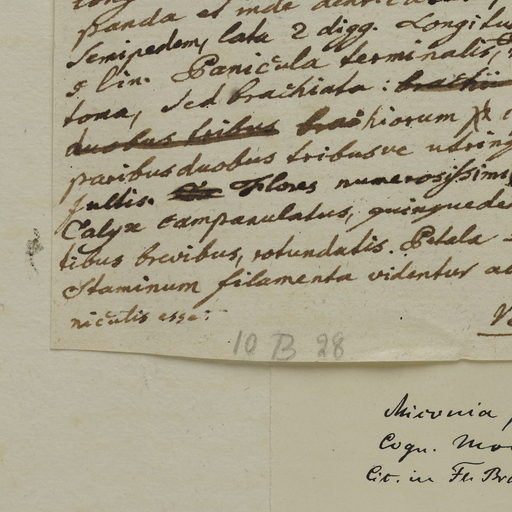 panda et inde
Semipedem, lata 2 digg. Longitu
9 lin. Panicula terminalis,
tona, sed brachiata:
duobus tribus brachiorum
paribus duobus tribusve utring
fultis. Flores numerosissimi
Calyx campanulatus, quinquede
tibus brevibus, rotundatis. Petala
Staminum filamenta videntur
niculis esse.
10 B 28
Miconia
Cogn. Mon
Cit. in Fl. Bra